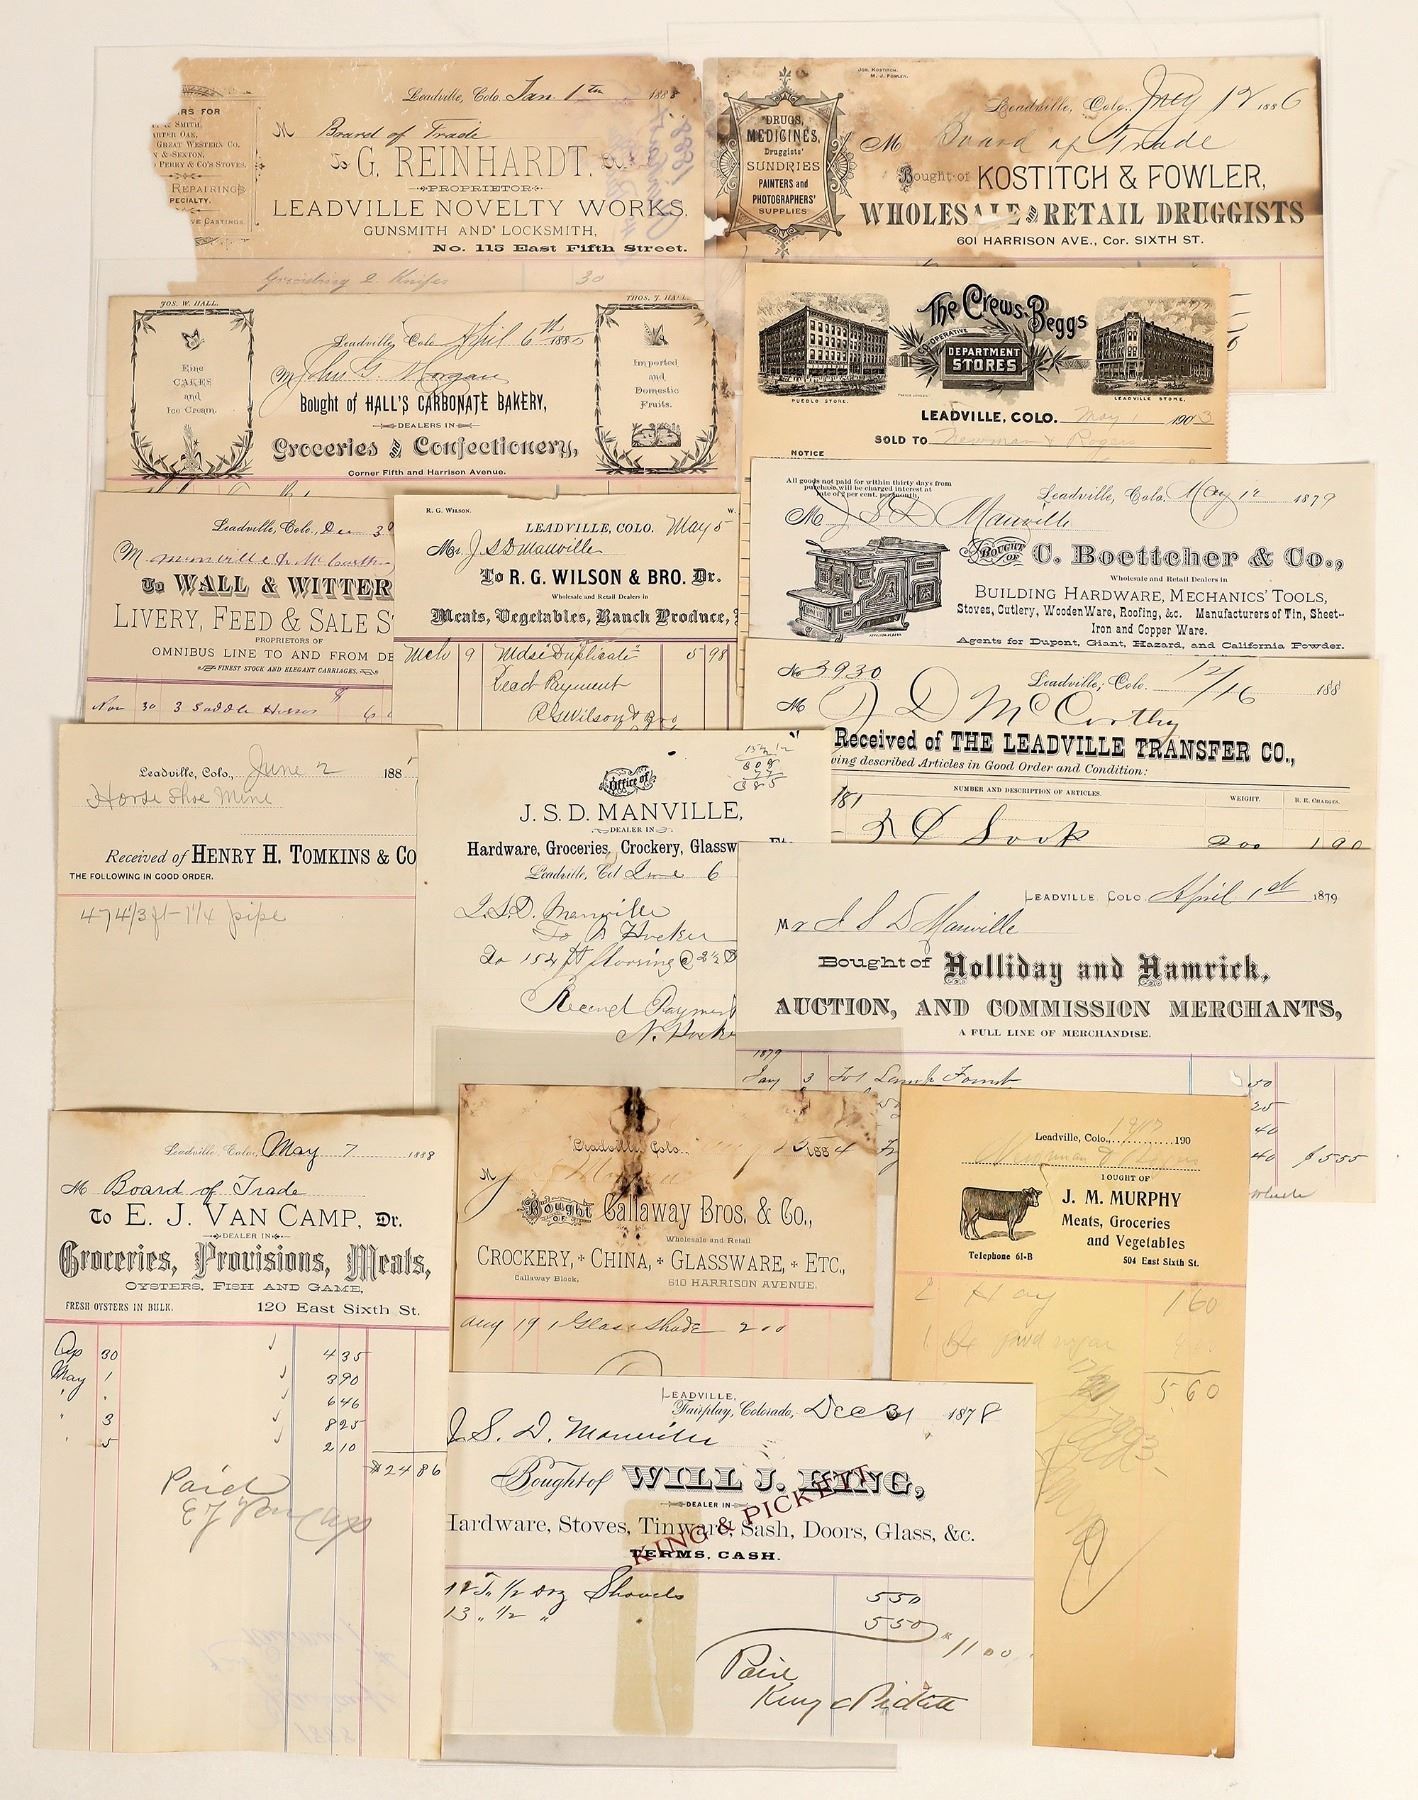 RS FOR
SMITH,
ARTER OAK,
GREAT WESTERN CO.
N & SEXTON,
PERRY & CO'S STOVES.
REPAIRING
PECIALTY.
VE CASTINGS.
Leadville, Colo. Jan. 1th 1888
M Board of Trade
To G. REINHARDT, Dr.
PROPRIETOR
LEADVILLE NOVELTY WORKS,
GUNSMITH AND LOCKSMITH,
No. 115 East Fifth Street.
Grinding 2 Knifes 30
JOS. KOSTITCH.
M. J. FOWLER.
DRUGS,
MEDICINES,
Druggists'
SUNDRIES
PAINTERS and
PHOTOGRAPHERS'
SUPPLIES
Leadville, Colo. 12 1886
M Board of Trade
Bought of KOSTITCH & FOWLER,
WHOLESALE AND RETAIL DRUGGISTS
601 HARRISON AVE., Cor. SIXTH ST.
JOS. W. HALL.
THOS. J. HALL.
Fine
CAKES
and
Ice Cream.
Imported
and
Domestic
Fruits.
Leadville, Colo April 6th 188
M John G Morgan
Bought of HALL'S CARBONATE BAKERY,
DEALERS IN
Groceries and Confectionery,
Corner Fifth and Harrison Avenue.
The Crews-Beggs
CO-OPERATIVE
DEPARTMENT
STORES
PUEBLO STORE.
LEADVILLE STORE.
LEADVILLE, COLO. May 1 1903
SOLD TO Newman & Rogers
NOTICE
Leadville, Colo., Dec 3
M Manville & McCarthy
To WALL & WITTER
LIVERY, FEED & SALE S
PROPRIETORS OF
OMNIBUS LINE TO AND FROM DE
FINEST STOCK AND ELEGANT CARRIAGES.
Nov 30 3 Saddle Horses
R. G. WILSON.
W.
LEADVILLE, COLO. May 5
Mr. J S D Manville
To R. G. WILSON & BRO. Dr.
Wholesale and Retail Dealers in
Meats, Vegetables, Ranch Produce,
Mch 9 Mdse Duplicate 5 98
Recd Payment
R G Wilson & Bro
All goods not paid for within thirty days from
purchase, will be charged interest at
rate of 2 per cent. per month.
Leadville, Colo. May 12 1879
M J S D Manville
BOUGHT OF C. Boettcher & Co.,
Wholesale and Retail Dealers in
BUILDING HARDWARE, MECHANICS' TOOLS,
Stoves, Cutlery, WoodenWare, Roofing, &c. Manufacturers of Tin, Sheet-
Iron and Copper Ware.
Agents for Dupont, Giant, Hazard, and California Powder.
No 3930 Leadville, Colo. 12/16 188
M J D McCarthy
Received of THE LEADVILLE TRANSFER CO.,
ving described Articles in Good Order and Condition:
NUMBER AND DESCRIPTION OF ARTICLES. WEIGHT. R. R. CHARGES.
181
200 1 90
Leadville, Colo., June 2 188
Horse Shoe Mine
Received of HENRY H. TOMKINS & CO
THE FOLLOWING IN GOOD ORDER.
474 1/3 ft - 1 1/4 pipe
Office of
J. S. D. MANVILLE,
DEALER IN
Hardware, Groceries, Crockery, Glassw
Leadville, Col June 6
J. S. D. Manville
To N Hocker
To 154 ft flooring @ 2 1/2
Received Payment
N. Hocke
LEADVILLE, COLO, April 1st 1879
Mr J S D Manville
Bought of Holliday and Hamrick,
AUCTION, AND COMMISSION MERCHANTS,
A FULL LINE OF MERCHANDISE.
1879
Jan 3 50
25
40
40 $5.55
Leadville, Colo., May 7 1888
M Board of Trade
To E. J. VAN CAMP, Dr.
DEALER IN
Groceries, Provisions, Meats,
OYSTERS, FISH AND GAME,
FRESH OYSTERS IN BULK. 120 East Sixth St.
Ap 30 4 35
May 1 3 90
" " 6 46
" 3 8 25
" 5 2 10
$24 86
Paid
E J Van Camp
Leadville, Colo. 1884
M
Bought OF Callaway Bros. & Co.,
Wholesale and Retail
CROCKERY, CHINA, GLASSWARE, ETC.,
Callaway Block, 510 HARRISON AVENUE.
Aug 19 1 Glass Shade 2 00
Leadville, Colo., 12/17 190
Newman & Rogers
BOUGHT OF
J. M. MURPHY
Meats, Groceries
and Vegetables
Telephone 61-B 504 East Sixth St.
2 Hay 1 60
5 60
LEADVILLE,
Fairplay, Colorado, Dec 31 1878
J. S. D. Manville
Bought of WILL J. KING,
KING & PICKETT
DEALER IN
Hardware, Stoves, Tinware, Sash, Doors, Glass, &c.
TERMS, CASH.
12 To 1/2 doz Shovels 5 50
13 " 1/2 " 5 50
$11 00
Paid
King & Pickett